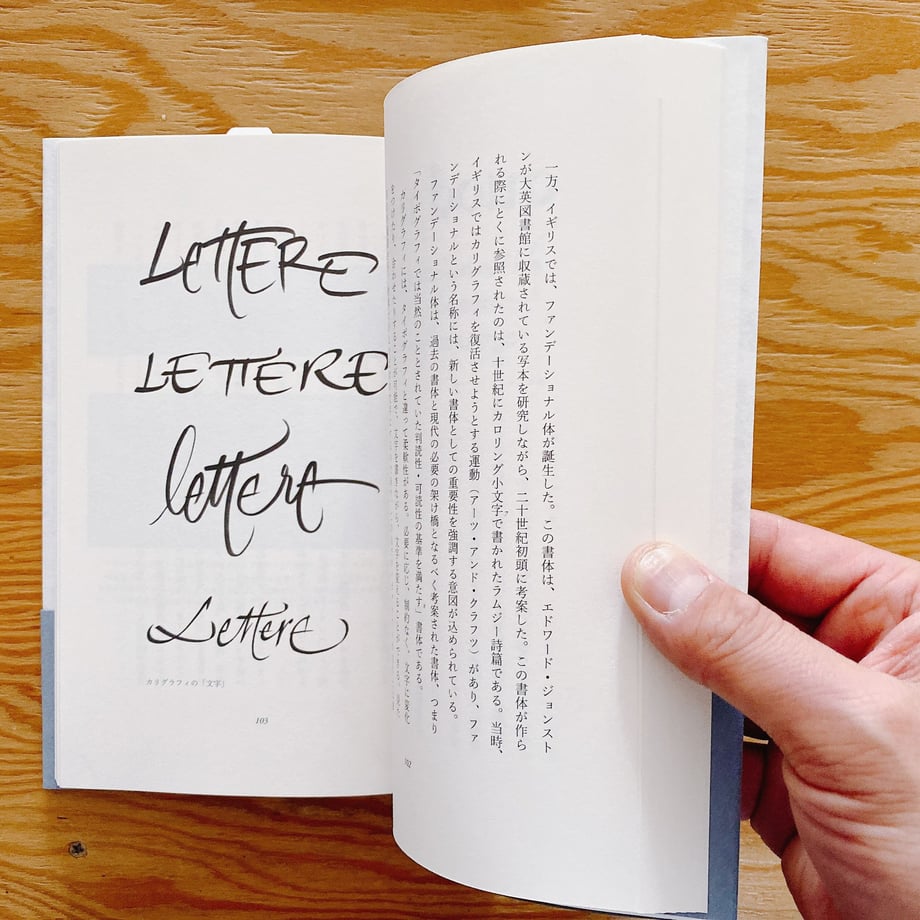 一方、イギリスでは、ファンデーショナル体が誕生した。この書体は、エドワード・ジョンスト
ンが大英図書館に収蔵されている写本を研究しながら、二十世紀初頭に考案した。この書体が作ら
れる際にとくに参照されたのは、十世紀にカロリング小文字で書かれたラムジー詩篇である。当時、
イギリスではカリグラフィを復活させようとする運動（アーツ・アンド・クラフツ）があり、ファ
ンデーショナルという名称には、新しい書体としての重要性を強調する意図が込められている。
ファンデーショナル体は、過去の書体と現代の必要の架け橋となるべく考案された書体、つまり
「タイポグラフィでは当然のこととされていた判読性・可読性の基準を満たす」書体である。
カリグラフィには、タイポグラフィと違って柔軟性がある。必要に応じ、制約なく、文字に変化
をつけたり、合わせたりすることが可能で、文字を書きながら、文字を変えることができる。
102
LETTERE
LETTERE
lettere
Lettere
カリグラフィの「文字」
103